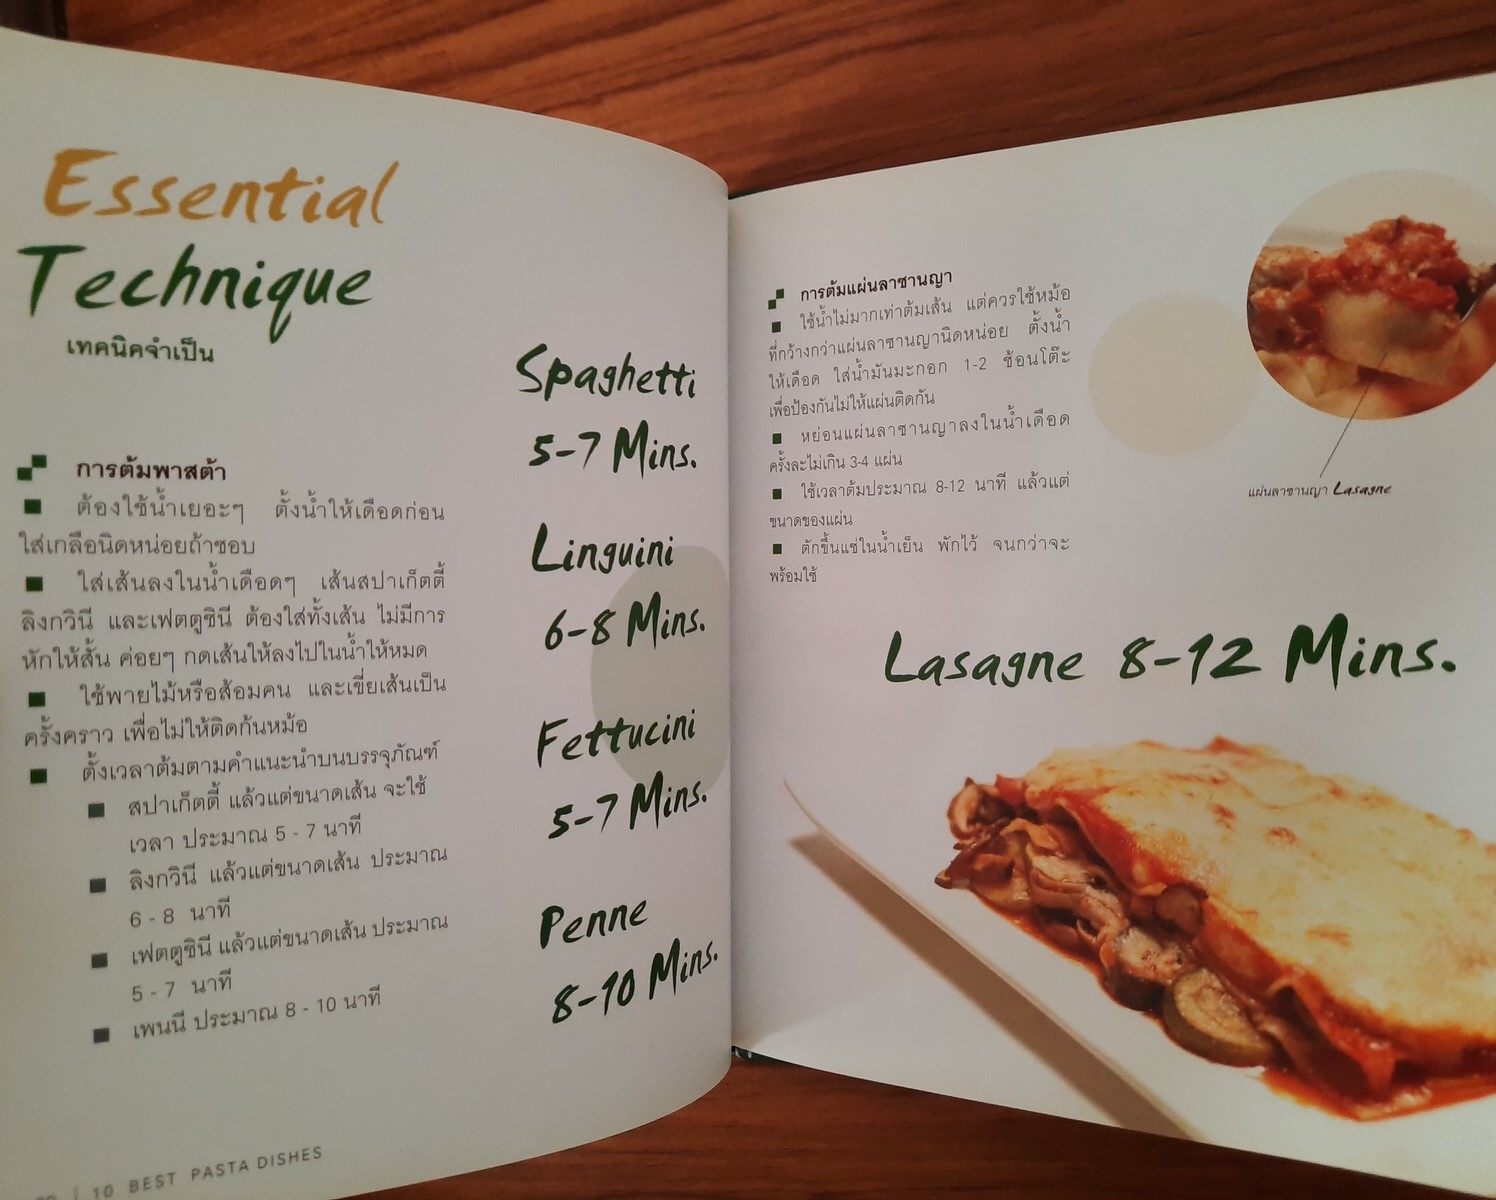 Essential
Technique
เทคนิคจำเป็น
การต้มพาสต้า
ต้องใช้น้ำเยอะๆ ตั้งน้ำให้เดือดก่อน
ใส่เกลือนิดหน่อยถ้าชอบ
ใส่เส้นลงในน้ำเดือดๆ เส้นสปาเก็ตตี้
ลิงกวินี และเฟตตูชินี ต้องใส่ทั้งเส้น ไม่มีการ
หักให้สั้น ค่อยๆ กดเส้นให้ลงไปในน้ำให้หมด
ใช้พายไม้หรือส้อมคน และเขี่ยเส้นเป็น
ครั้งคราว เพื่อไม่ให้ติดก้นหม้อ
ตั้งเวลาต้มตามคำแนะนำบนบรรจุภัณฑ์
สปาเก็ตตี้ แล้วแต่ขนาดเส้น จะใช้
เวลา ประมาณ 5 - 7 นาที
ลิงกวินี แล้วแต่ขนาดเส้น ประมาณ
6 - 8 นาที
เฟตตูชินี แล้วแต่ขนาดเส้น ประมาณ
5 - 7 นาที
เพนนี ประมาณ 8 - 10 นาที
Spaghetti
5-7 Mins.
Linguini
6-8 Mins.
Fettucini
5-7 Mins.
Penne
8-10 Mins.
10 BEST PASTA DISHES
การต้มแผ่นลาซานญา
ใช้น้ำไม่มากเท่าต้มเส้น แต่ควรใช้หม้อ
ที่กว้างกว่าแผ่นลาซานญานิดหน่อย ตั้งน้ำ
ให้เดือด ใส่น้ำมันมะกอก 1-2 ช้อนโต๊ะ
เพื่อป้องกันไม่ให้แผ่นติดกัน
หย่อนแผ่นลาซานญาลงในน้ำเดือด
ครั้งละไม่เกิน 3-4 แผ่น
ใช้เวลาต้มประมาณ 8-12 นาที แล้วแต่
ขนาดของแผ่น
ตักขึ้นแช่ในน้ำเย็น พักไว้ จนกว่าจะ
พร้อมใช้
แผ่นลาซานญา Lasagne
Lasagne 8-12 Mins.